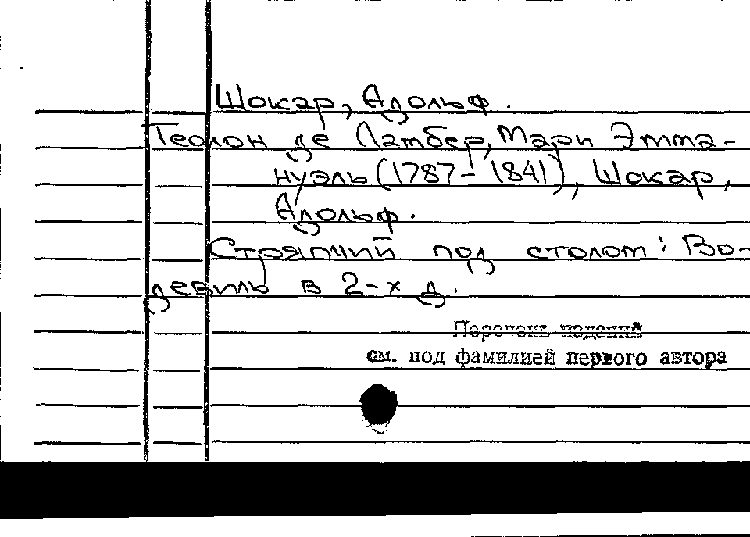 Шокар, Адольф.
Теолон де Ламбер, Мари Эмма-
нуэль (1787-1841), Шокар,
Адольф.
Стряпчий под столом: Во-
девиль в 2-х д.
Перечень изданий
см. под фамилией первого автора